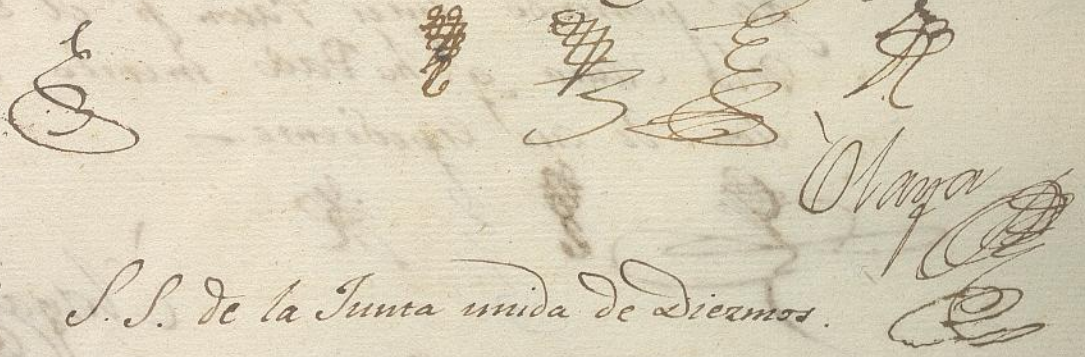 Olaya
S. S. de la Junta unida de Diezmos.